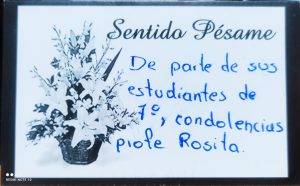 Sentido Pésame
De parte de sus
estudiantes de
7º, condolencias
profe Rosita.
REDMI NOTE 10